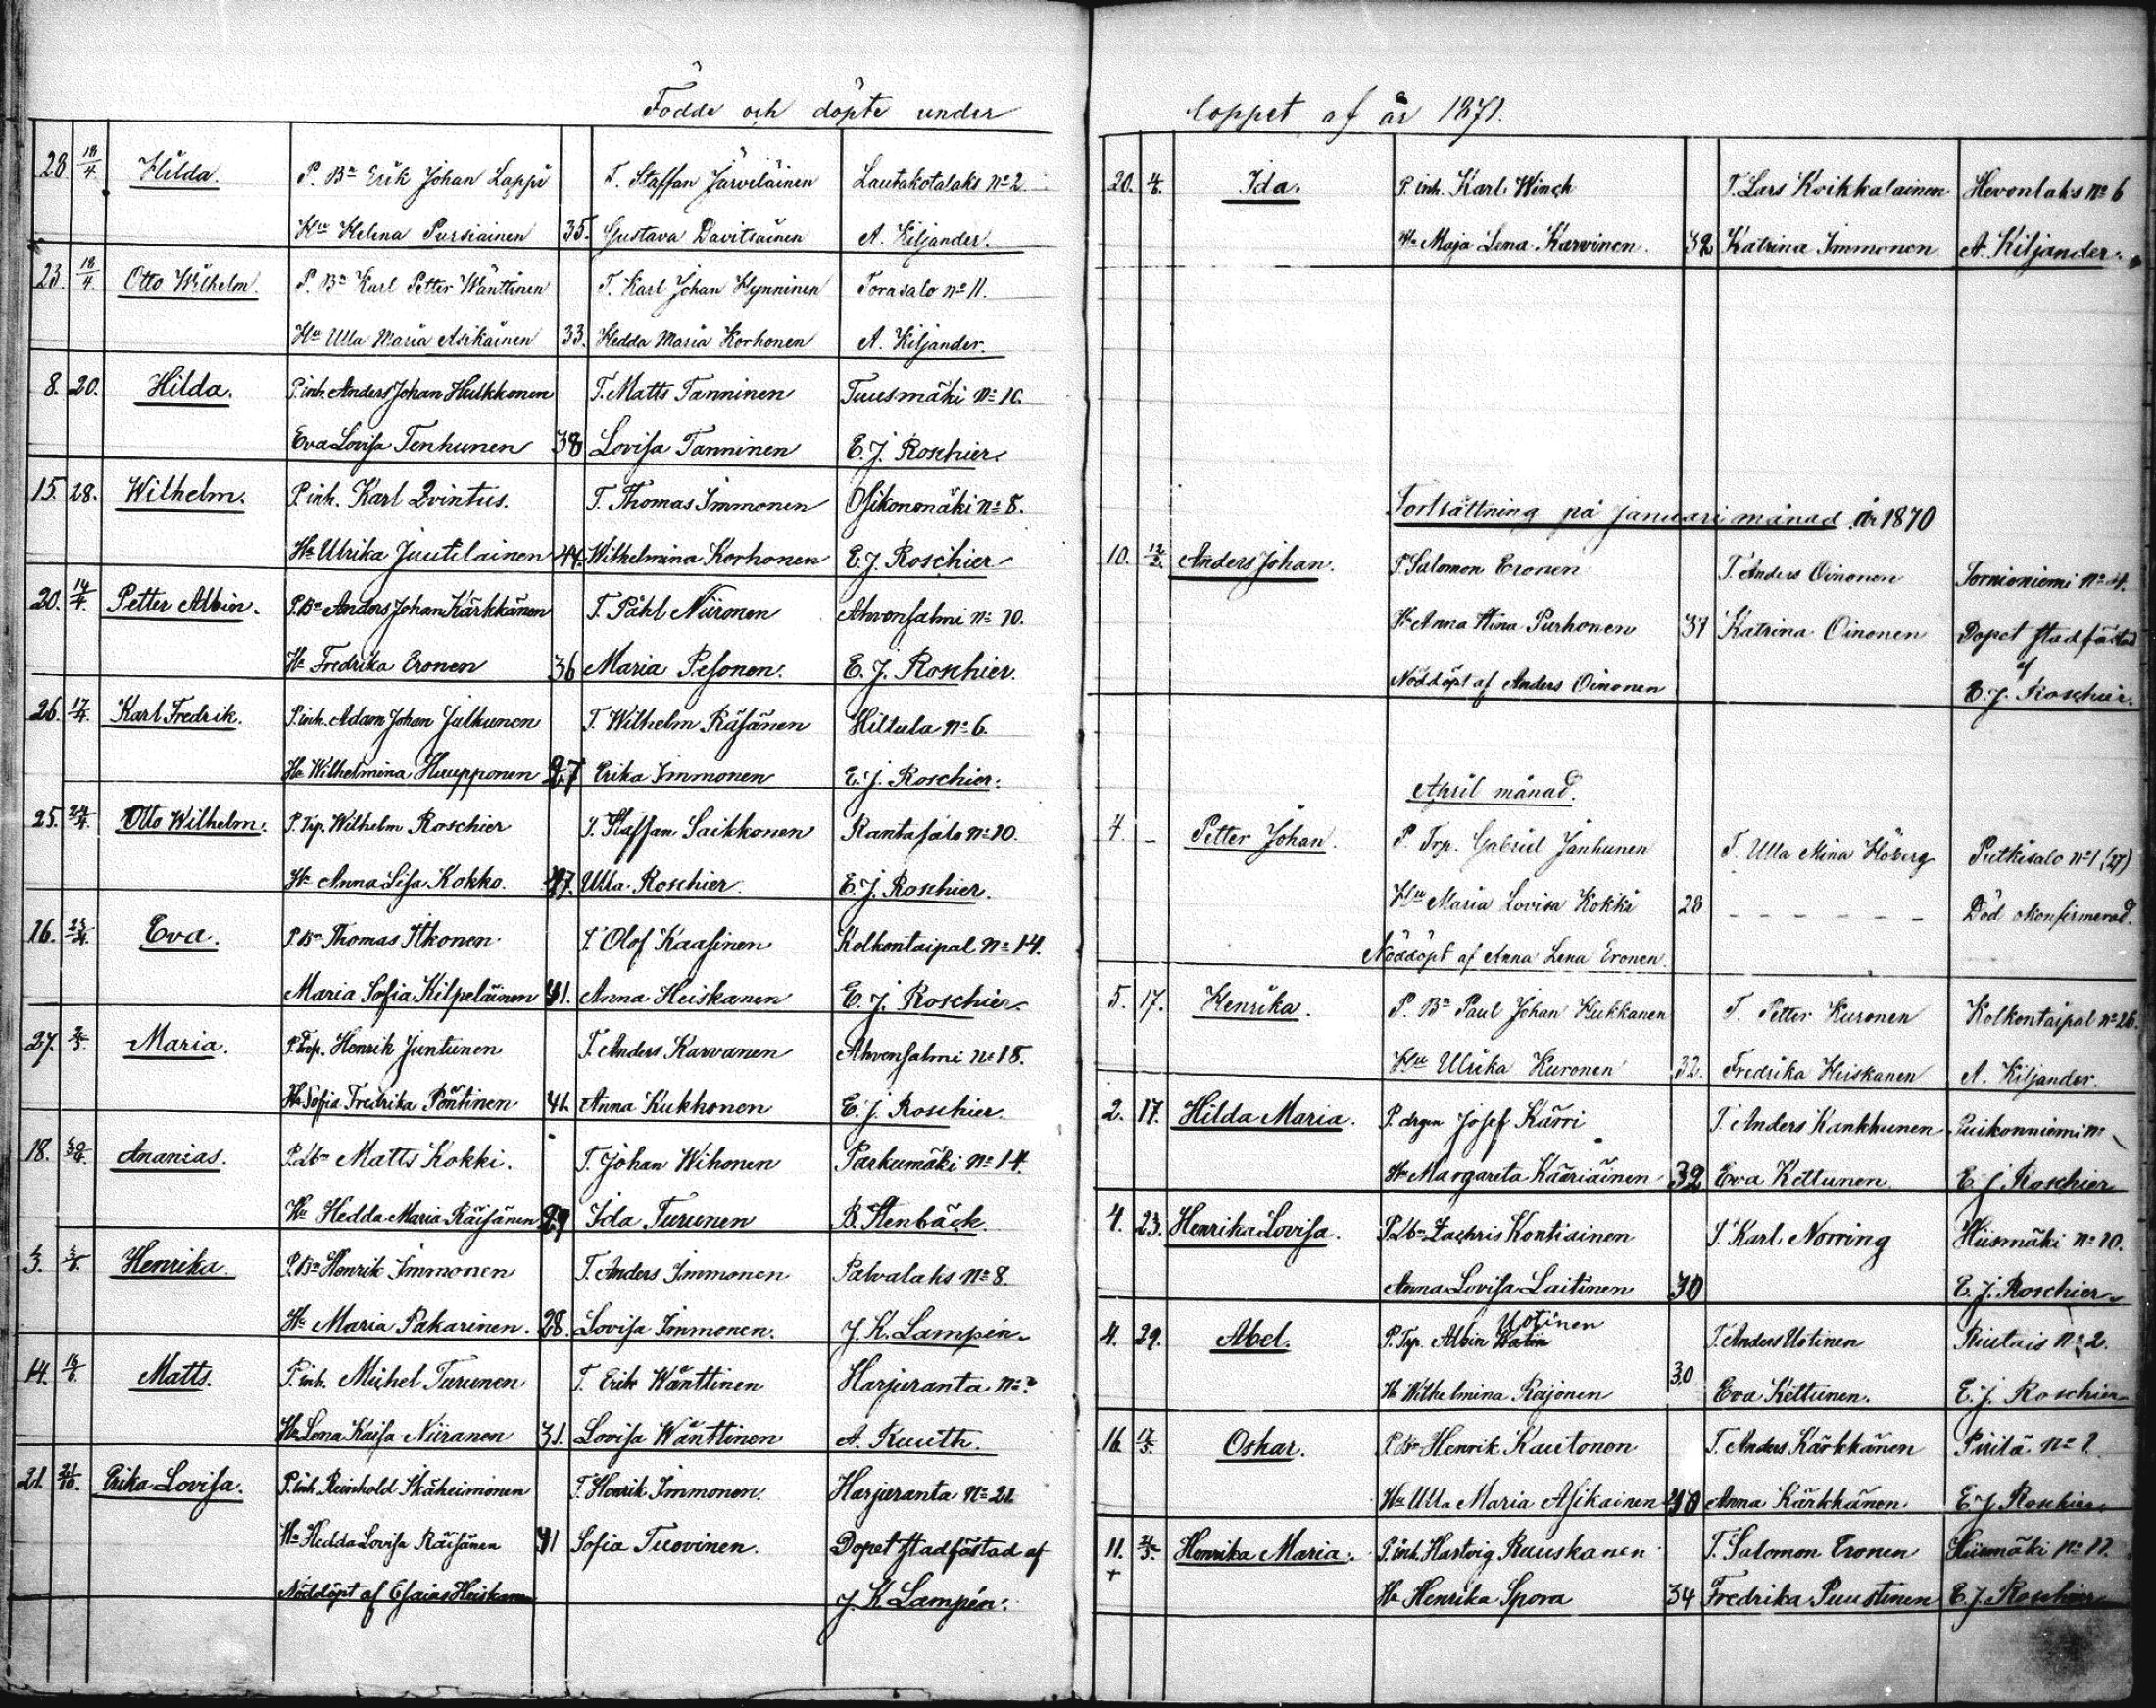 Födde och döpte under
28. 18/4. Hilda. P. Bn Erik Johan Lappi T. Staffan Järveläinen Lautakotalaks No 2.
Hu Helena Pursiainen 35. Gustava Davitsainen A. Kiljander.
23. 18/4 Otto Wilhelm. P. Bn Karl Petter Wänttinen T. Karl Johan Hynninen Torasalo No 11.
Hu Ulla Maria Asikainen 33. Hedda Maria Korhonen A. Kiljander.
8. 20. Hilda. P. inh. Anders Johan Hulkkonen T. Matts Tanninen Tuusmäki No 10.
Eva Lovisa Tenhunen 38 Lovisa Tanninen E. J. Roschier.
15. 28. Wilhelm. P. inh. Karl Qvintus. T. Thomas Immonen Osikonmäki No 8.
Hu Ulrika Juutilainen 44. Wilhelmina Korhonen E. J. Roschier
20. 14/4. Petter Albin. P. Bn Anders Johan Kärkkänen T. Påhl Niironen Ahvensalmi No 10.
Hu Fredrika Eronen 36 Maria Pesonen. E. J. Roschier.
26. 17/4. Karl Fredrik. P. inh. Adam Johan Julkunen T. Wilhelm Räsänen Hiltula No 6.
Hu Wilhelmina Huupponen 27 Erika Immonen E. J. Roschier.
25. 24/4. Otto Wilhelm. P. Trp. Wilhelm Roschier T. Staffan Saikkonen Rantasalo No 10.
Hu Anna Lisa Kokko. 47. Ulla Roschier. E. J. Roschier.
16. 23/4. Eva. P. Bn Thomas Itkonen T. Olof Kaasinen Kolkontaipal No 14.
Maria Sofia Kilpeläinen 41. Anna Heiskanen E. J. Roschier.
27. 2/5. Maria. P. Trp. Henrik Juntunen T. Anders Karvanen Ahvensalmi No 18.
Hu Sofia Fredrika Pöntinen 41. Anna Kukkonen E. J. Roschier.
18. 30/4. Ananias. P. Lbn Matts Kokki. T. Johan Wihonen Parkumäki No 14.
Hu Hedda Maria Räisänen 29 Ida Turunen B. Stenbäck.
3. Henrika. P. Bn Henrik Immonen T. Anders Immonen Palvalaks No 8.
Hu Maria Pakarinen. 28. Lovisa Immonen. J. K. Lampén.
14. 16/6. Matts. P. inh. Michel Turunen T. Erik Wänttinen Harjuranta No ?
Hu Lena Kaisa Niiranen 31. Lovisa Wänttinen A. Kuuth.
21. 21/10. Erika Lovisa. P. inh. Reinhold Ikäheimonen T. Henrik Immonen. Harjuranta No 21
Hu Hedda Lovisa Räisänen 41 Sofia Tuovinen. Dopet stadfästad af
Nöddöpt af Esaias Heiskanen J. K. Lampén.
loppet af år 1871.
20. Ida. P. inh. Karl Winch T. Lars Koikkalainen Hevonlaks No 6
Hu Maja Lena Karvinen. 32 Katrina Immonen A. Kiljander.
Fortsättning på Januari månad år 1870
10. 12/2. Anders Johan. P. Salomon Eronen T. Anders Oinonen Tornioniemi No 4.
Hu Anna Stina Purhonen 31 Katrina Oinonen Dopet stadfästad
af
Nöddöpt af Anders Oinonen E. J. Roschier.
April månad.
4. – Petter Johan. P. Trp. Gabriel Janhunen T. Ulla Mina Höberg Putkisalo No 1 (27)
Hu Maria Lovisa Kokki 28 – – – – – – Död okonfirmerad.
Nöddöpt af Anna Lena Eronen.
5. 17. Henrika. P. Bn Paul Johan Kukkanen T. Petter Kuronen Kolkontaipal No 26.
Hu Ulrika Kuronen 32. Fredrika Heiskanen A. Kiljander.
2. 17. Hilda Maria. P. drgn Josef Karri T. Anders Kankkunen Puikonniemi No
Hu Margareta Kääriäinen 32 Eva Kettunen. E. J. Roschier
4. 23. Henrika Lovisa. P. Lbn Zachris Kontiainen T. Karl Norring Hiismäki No 10.
Anna Lovisa Laitinen 30 E. J. Roschier.
Uotinen
4. 29. Abel. P. Trp. Albin T. Anders Uotinen Riutais No 2.
Hu Wilhelmina Reijonen 30 Eva Kettunen. E. J. Roschier
16. 12/5. Oskar. P. Bn Henrik Kautonen T. Anders Kärkkänen Piritä No 1.
Hu Ulla Maria Asikainen 40 Anna Kärkkänen E. J. Roschier
11. Henrika Maria. P. inh. Hartvig Ruuskanen T. Salomon Eronen Hiismäki No 17.
+ Hu Henrika Spora 34 Fredrika Puustinen E. J. Roschier